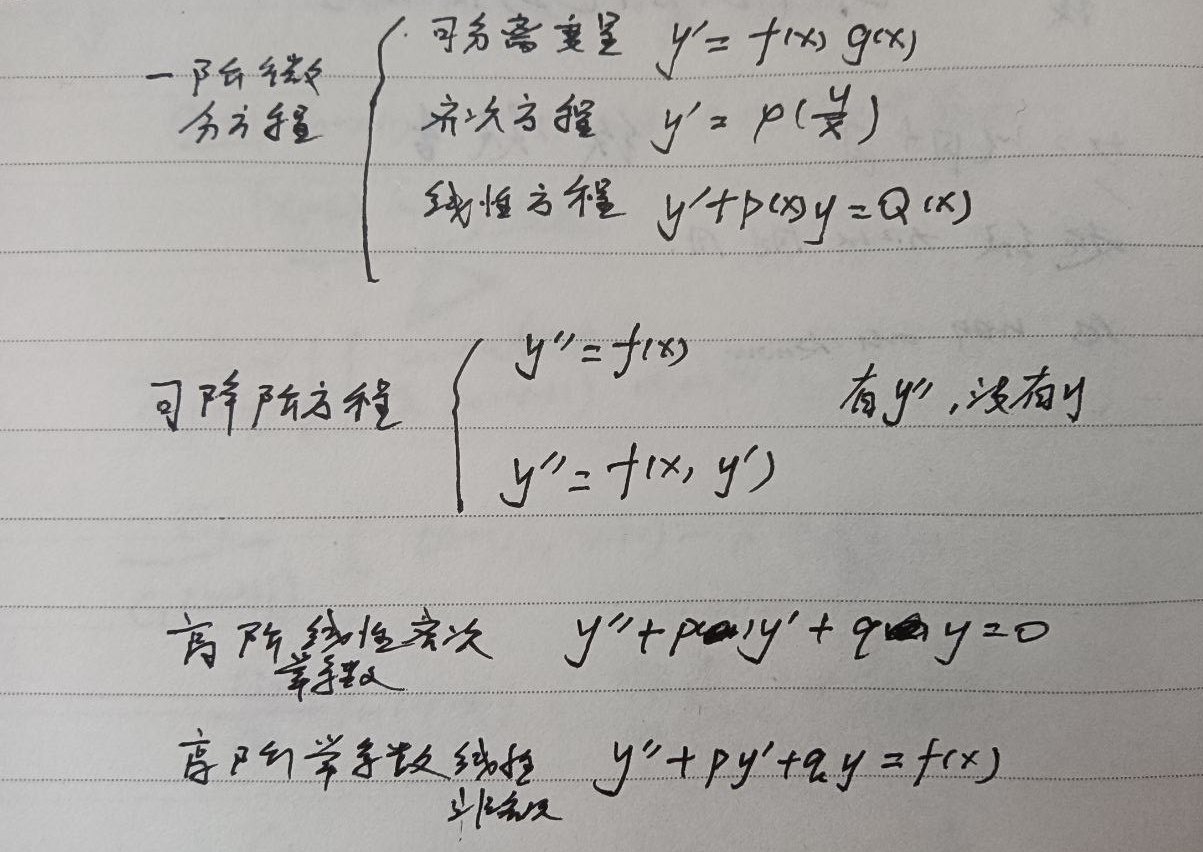 一阶微分方程
可分离变量 y′= f(x) g(x)
齐次方程 y′= φ(y/x)
线性方程 y′+p(x)y=Q(x)
可降阶方程
y″=f(x)
y″=f(x, y′)
有y″,没有y
高阶线性齐次 y″+py′+qy=0
常系数
高阶常系数线性 y″+py′+qy=f(x)
非齐次